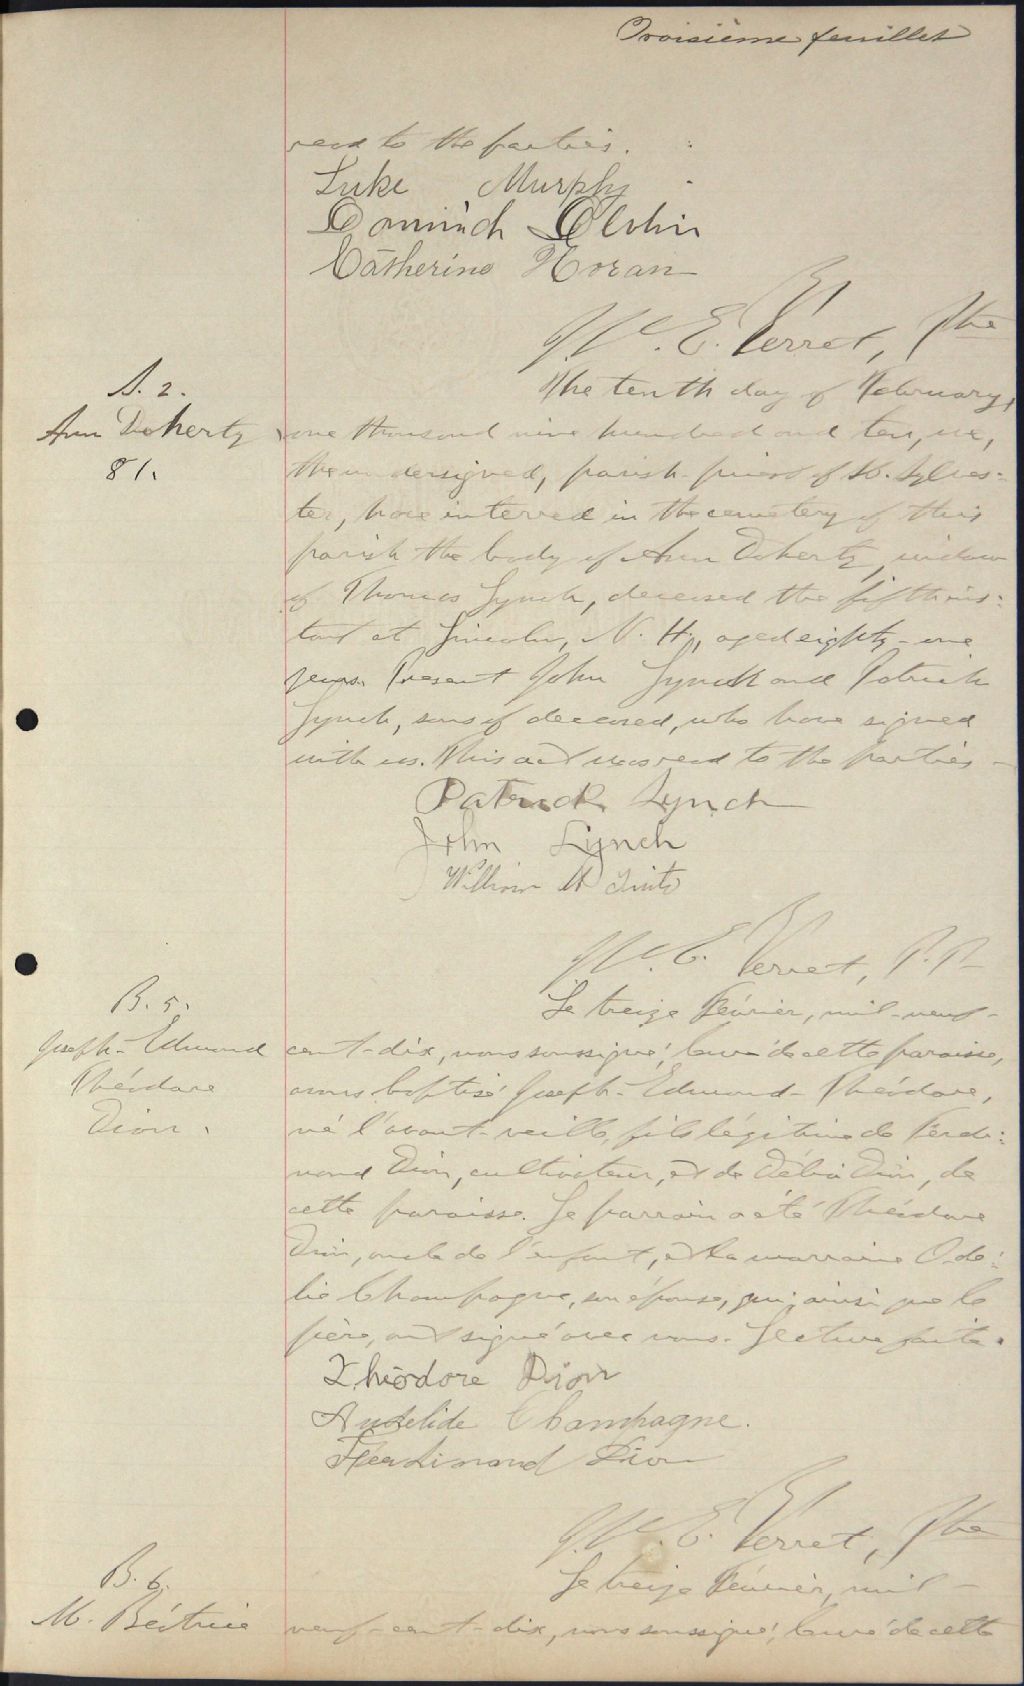 Troisième feuillet
read to the parties.
Luke Murphy
Dominick
Catherine Horan
E. Verret, Ptre
S. 2.
Ann Doherty
81.
The tenth day of February,
one thousand nine hundred and ten, we,
the undersigned, parish-priest of St. Sylves-
ter, have interred in the cemetery of this
parish the body of Ann Doherty, widow
of Thomas Lynch, deceased the fifth ins-
tant at Lincoln, N. H., aged eighty-one
years. Present John Lynch and Patrick
Lynch, sons of deceased, who have signed
with us. This act was read to the parties-
Patrick Lynch
John Lynch
William
E. Verret, P. P.
B. 5.
Joseph-Edmond
Théodore
Dion.
Le treize Février, mil-neuf-
cent-dix, nous soussigné, Curé de cette paroisse,
avons baptisé Joseph-Edmond-Théodore,
né l'avant-veille, fils légitime de Ferdi-
nand Dion, cultivateur, et de Délia Dion, de
cette paroisse. Le parrain a été Théodore
Dion, oncle de l'enfant, et la marraine Odé-
lie Champagne, son épouse, qui, ainsi que le
père, ont signé avec nous. Lecture faite.
Théodore Dion
Champagne.
Ferdinand Dion
E. Verret, Ptre
B. 6.
M. Béatrice
Le treize Février, mil-
neuf-cent-dix, nous soussigné, Curé de cette